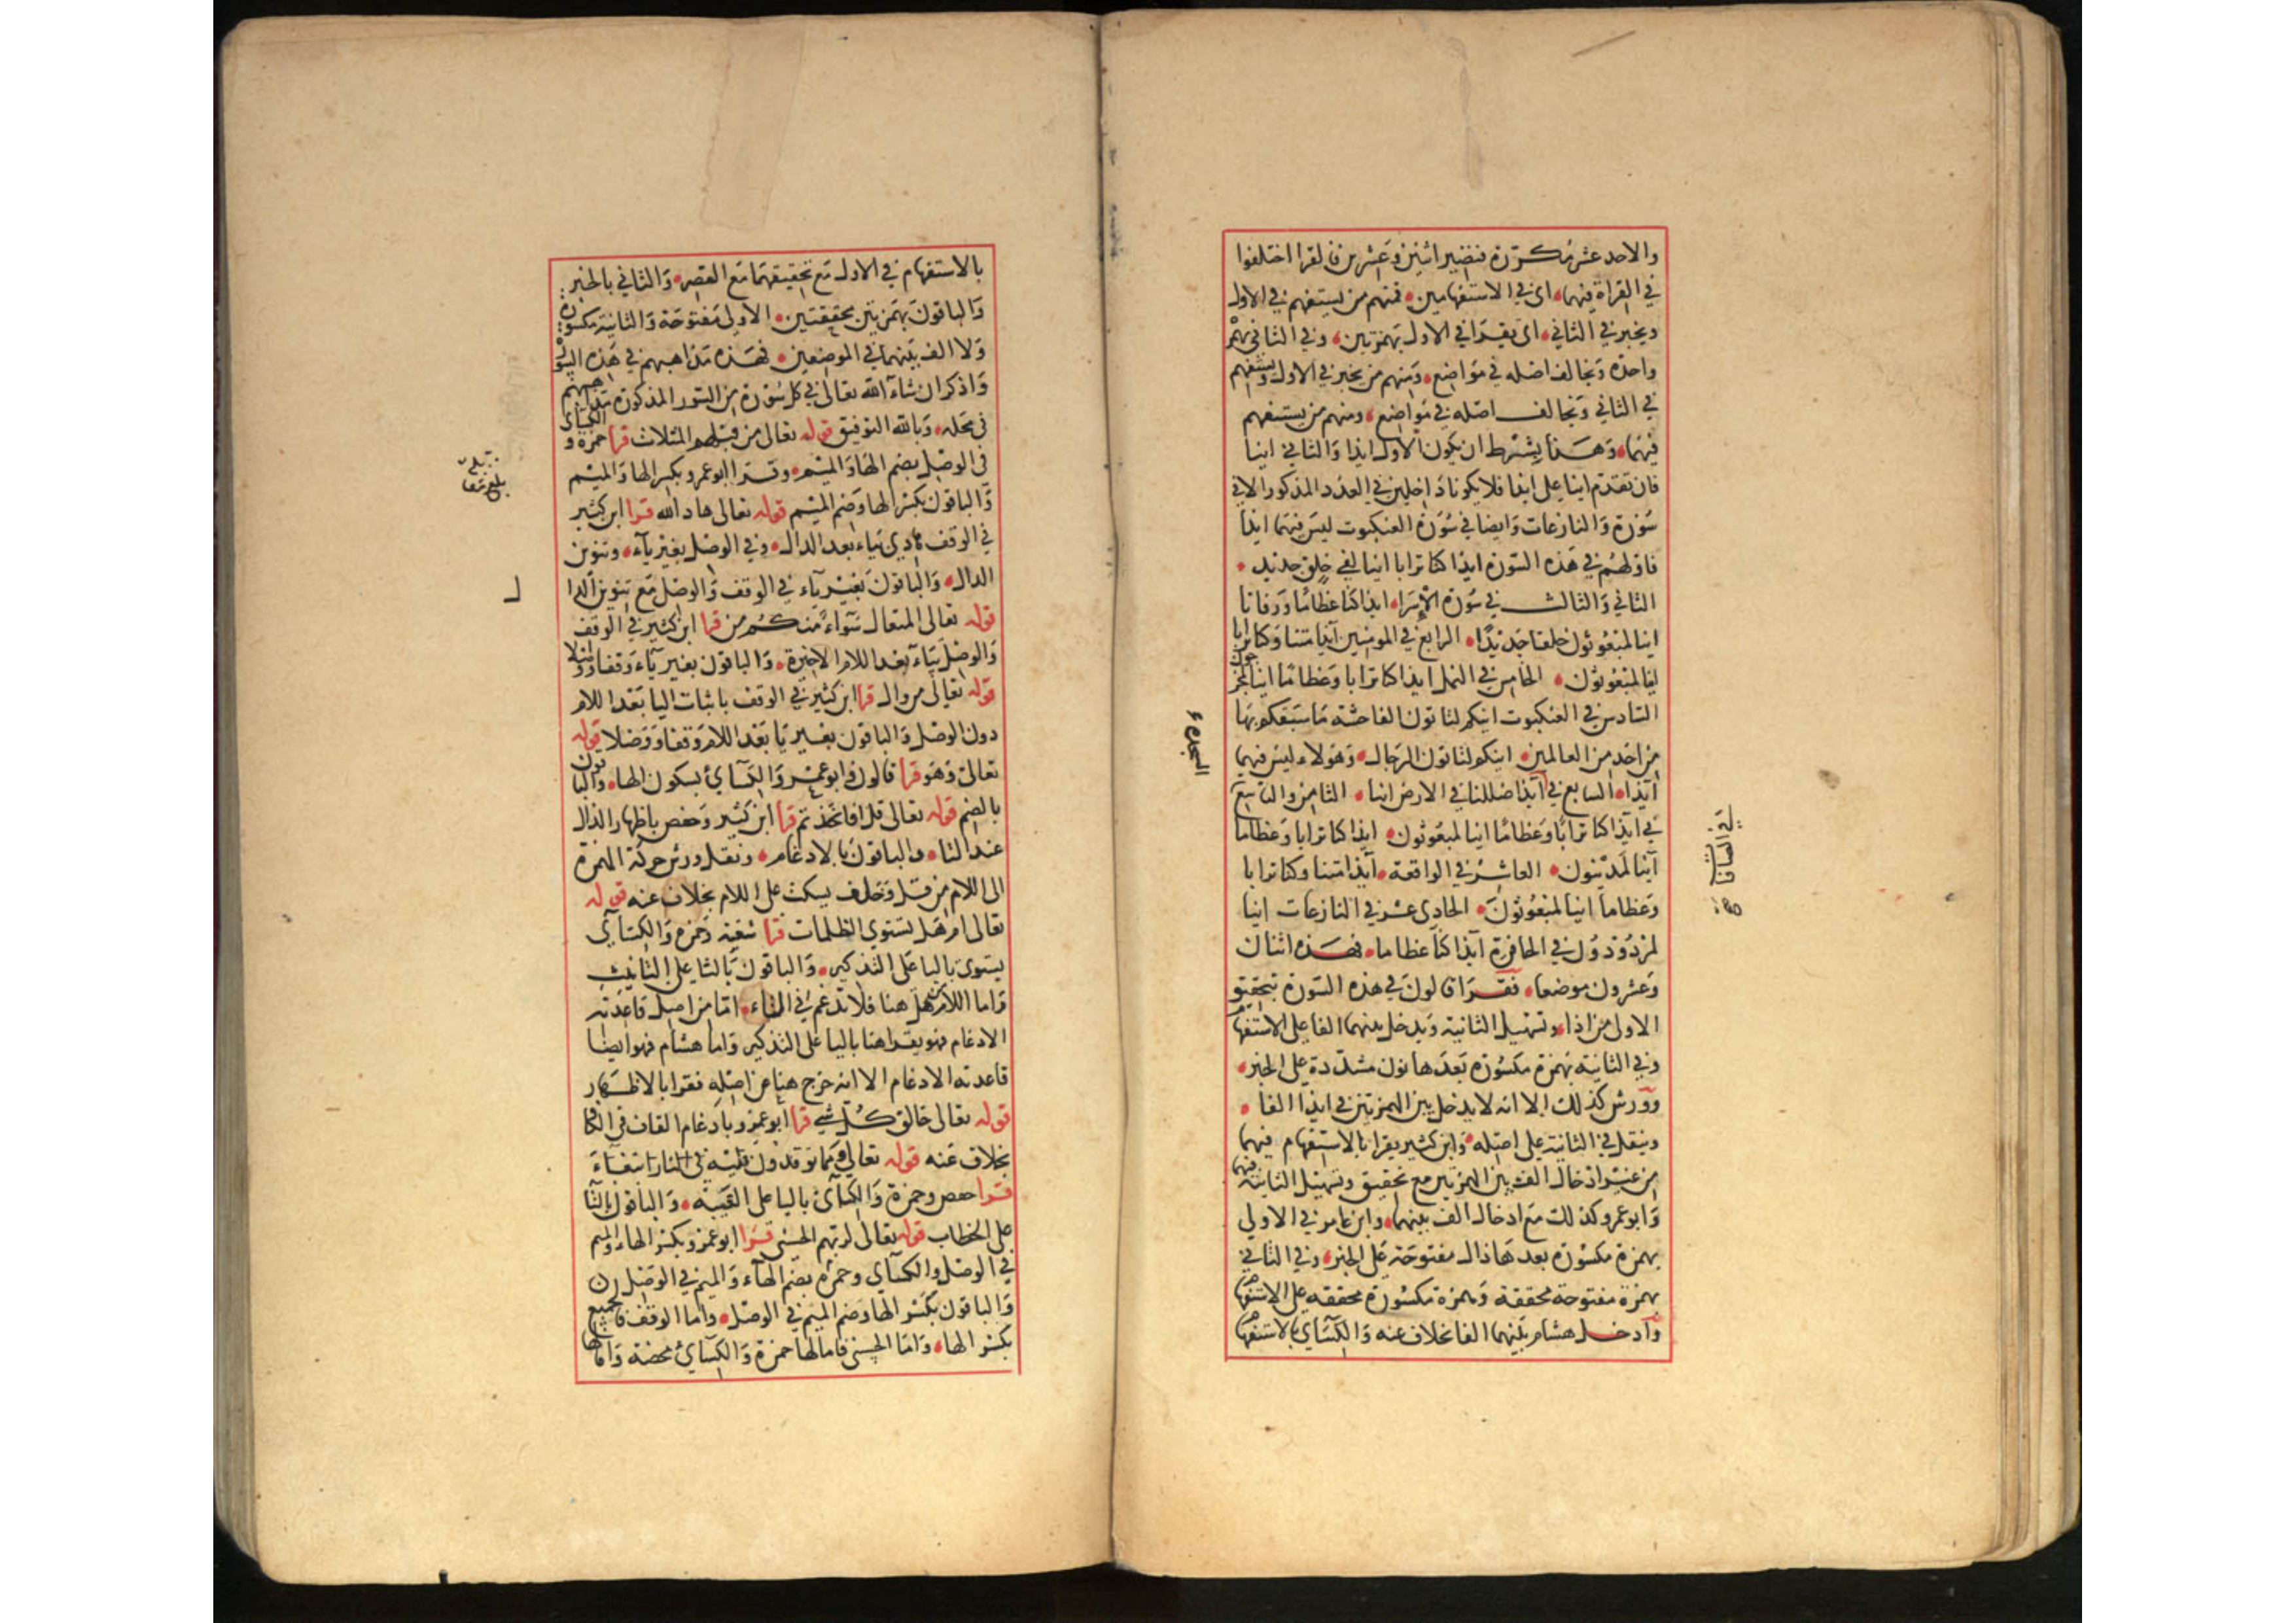 والاحد عشر مكررة فتصير اثنين وعشرين فالقرا اختلفوا
في القراة فيها اى في الاستفهامين فمنهم من يستفهم في الاول
ويخبر في الثاني اى يقرا في الاول بهمزتين وفي الثاني بهمزة
واحدة وتخالف اصله في مواضع ومنهم من يخبر في الاول ويستفهم
في الثاني وتخالف اصله في مواضع ومنهم من يستفهم
فيهما وهذا يشترط ان يكون الاول ايذا والثاني اينا
فان تقدم اينا على ايذا فلا يكونا داخلين في العدد المذكور الا في
سورة والنازعات وايضا في سورة العنكبوت ليس فيهما ايذا
فاولهم في هذه السورة ايذا كنا ترابا اينا لفي خلق جديد
الثاني والثالث في سورة الإسرا ايذا كنا عظاما ورفاتا
اينا لمبعوثون خلقا جديدا الرابع في المومنين آيذا متنا وكنا ترابا
اينا لمبعوثون الخامس في النمل ايذا كنا ترابا وعظاما اينا لمخرجون
السادس في العنكبوت اينكم لتاتون الفاحشة ما سبقكم بها
من احد من العالمين اينكم لتاتون الرجال وهولاء ليس فيهما
آيذا السابع في آيذا ضللنا في الارض اينا الثامن والتاسع
السجدة
في ايذا كنا ترابا وعظاما اينا لمبعوثون ايذا كنا ترابا وعظاما
في الصافات
آينا لمدينون العاشر في الواقعة آيذا متنا وكنا ترابا
وعظاما اينا لمبعوثون الحادى عشر في النازعات اينا
لمردودون في الحافرة آيذا كنا عظاما فهذه اثنان
وعشرون موضعا فقرا قالون في هذه السورة بتحقيق
الاولى من اذا وتسهيل الثانية ويدخل بينهما الفا على الاستفهام
وفي الثانية بهمزة مكسورة بعدها نون مشددة على الخبر
وورش كذلك الا انه لا يدخل بين الهمزتين في ايذا الفا
وينقل في الثانية على اصله وابن كثير يقرا بالاستفهام فيهما
من غير ادخال الف بين الهمزتين مع تحقيق وتسهيل الثانية فيهما
وابو عمرو كذلك مع ادخال الف بينهما وابن عامر في الاولى
بهمزة مكسورة بعدها ذال مفتوحة على الخبر وفي الثاني
بهمزة مفتوحة محققة وهمزة مكسورة محققه على الاستفهام
وادخل هشام بينهما الفا بخلاف عنه والكسآى بالاستفهام
بالاستفهام في الاول مع تحقيقهما مع القصر والثاني بالخبر
والباقون بهمزتين محققتين الاولى مفتوحة والثانية مكسورة
ولا الف بينهما في الموضعين فهذه مذاهبهم في هذه السور
واذكر ان شاء الله تعالى في كل سورة من السور المذكورة مذاهبهم
في محله وبالله التوفيق قوله تعالى من قبلهم المثلات قرا حمزة والكسآى
في الوصل بضم الها والميم وقرا ابو عمرو بكسر الها والميم
والباقون بكسر الها وضم الميم قوله تعالى هاد الله قرا ابن كثير
في الوقف هادى بياء بعد الدال وفي الوصل بغير يآء وتنوين
الدال والباقون بغير يآء في الوقف والوصل مع تنوين الدال
قوله تعالى المتعال سواء منكم من قرا ابن كثير في الوقف
والوصل بياء بعد اللام الاخيرة والباقون بغير يآء وقفا ووصلا
قوله تعالى من وال قرا ابن كثير في الوقف باثبات اليا بعد اللام
دون الوصل والباقون بغير يا بعد اللام وقفا ووصلا قوله
تعالى وهو قرا قالون وابو عمرو والكسآى بسكون الها والباقون
بالضم قوله تعالى قل افاتخذتم قرا ابن كثير وحفص باظهار الذال
عند التا والباقون بالادغام ونقل ورش حركة الهمزة
الى اللام من قل وخلف يسكت على اللام بخلاف عنه قوله
تعالى ام هل تستوى الظلمات قرا شعبه وحمزه والكسآى
يستوى باليا على التذكير والباقون بالتا على التانيث
واما اللام من هل هنا فلا تدغم في التاء امّا من اصل قاعدته
الادغام فهو يقرا هنا باليا على التذكير واما هشام فهو ايضا
قاعدته الادغام الا انه خرج هنا عن اصله فقرا بالاظهار
قوله تعالى خالق كل شي قرا ابو عمرو بادغام القاف في الكاف
بخلاف عنه قوله تعالى ومما توقدون عليه في النار ابتغاء
قرا حفص وحمزة والكسآى باليا على الغيبه والباقون بالتا
على الخطاب قوله تعالى لربهم الحسنى قرا ابو عمرو بكسر الهاء والميم
في الوصل والكسآى وحمزه بضم الهآء والميم في الوصل
والباقون بكسر الها وضم الميم في الوصل واما الوقف فالجميع
بكسر الها واما الحسنى فامالها حمزة والكسآى محضه وامالها